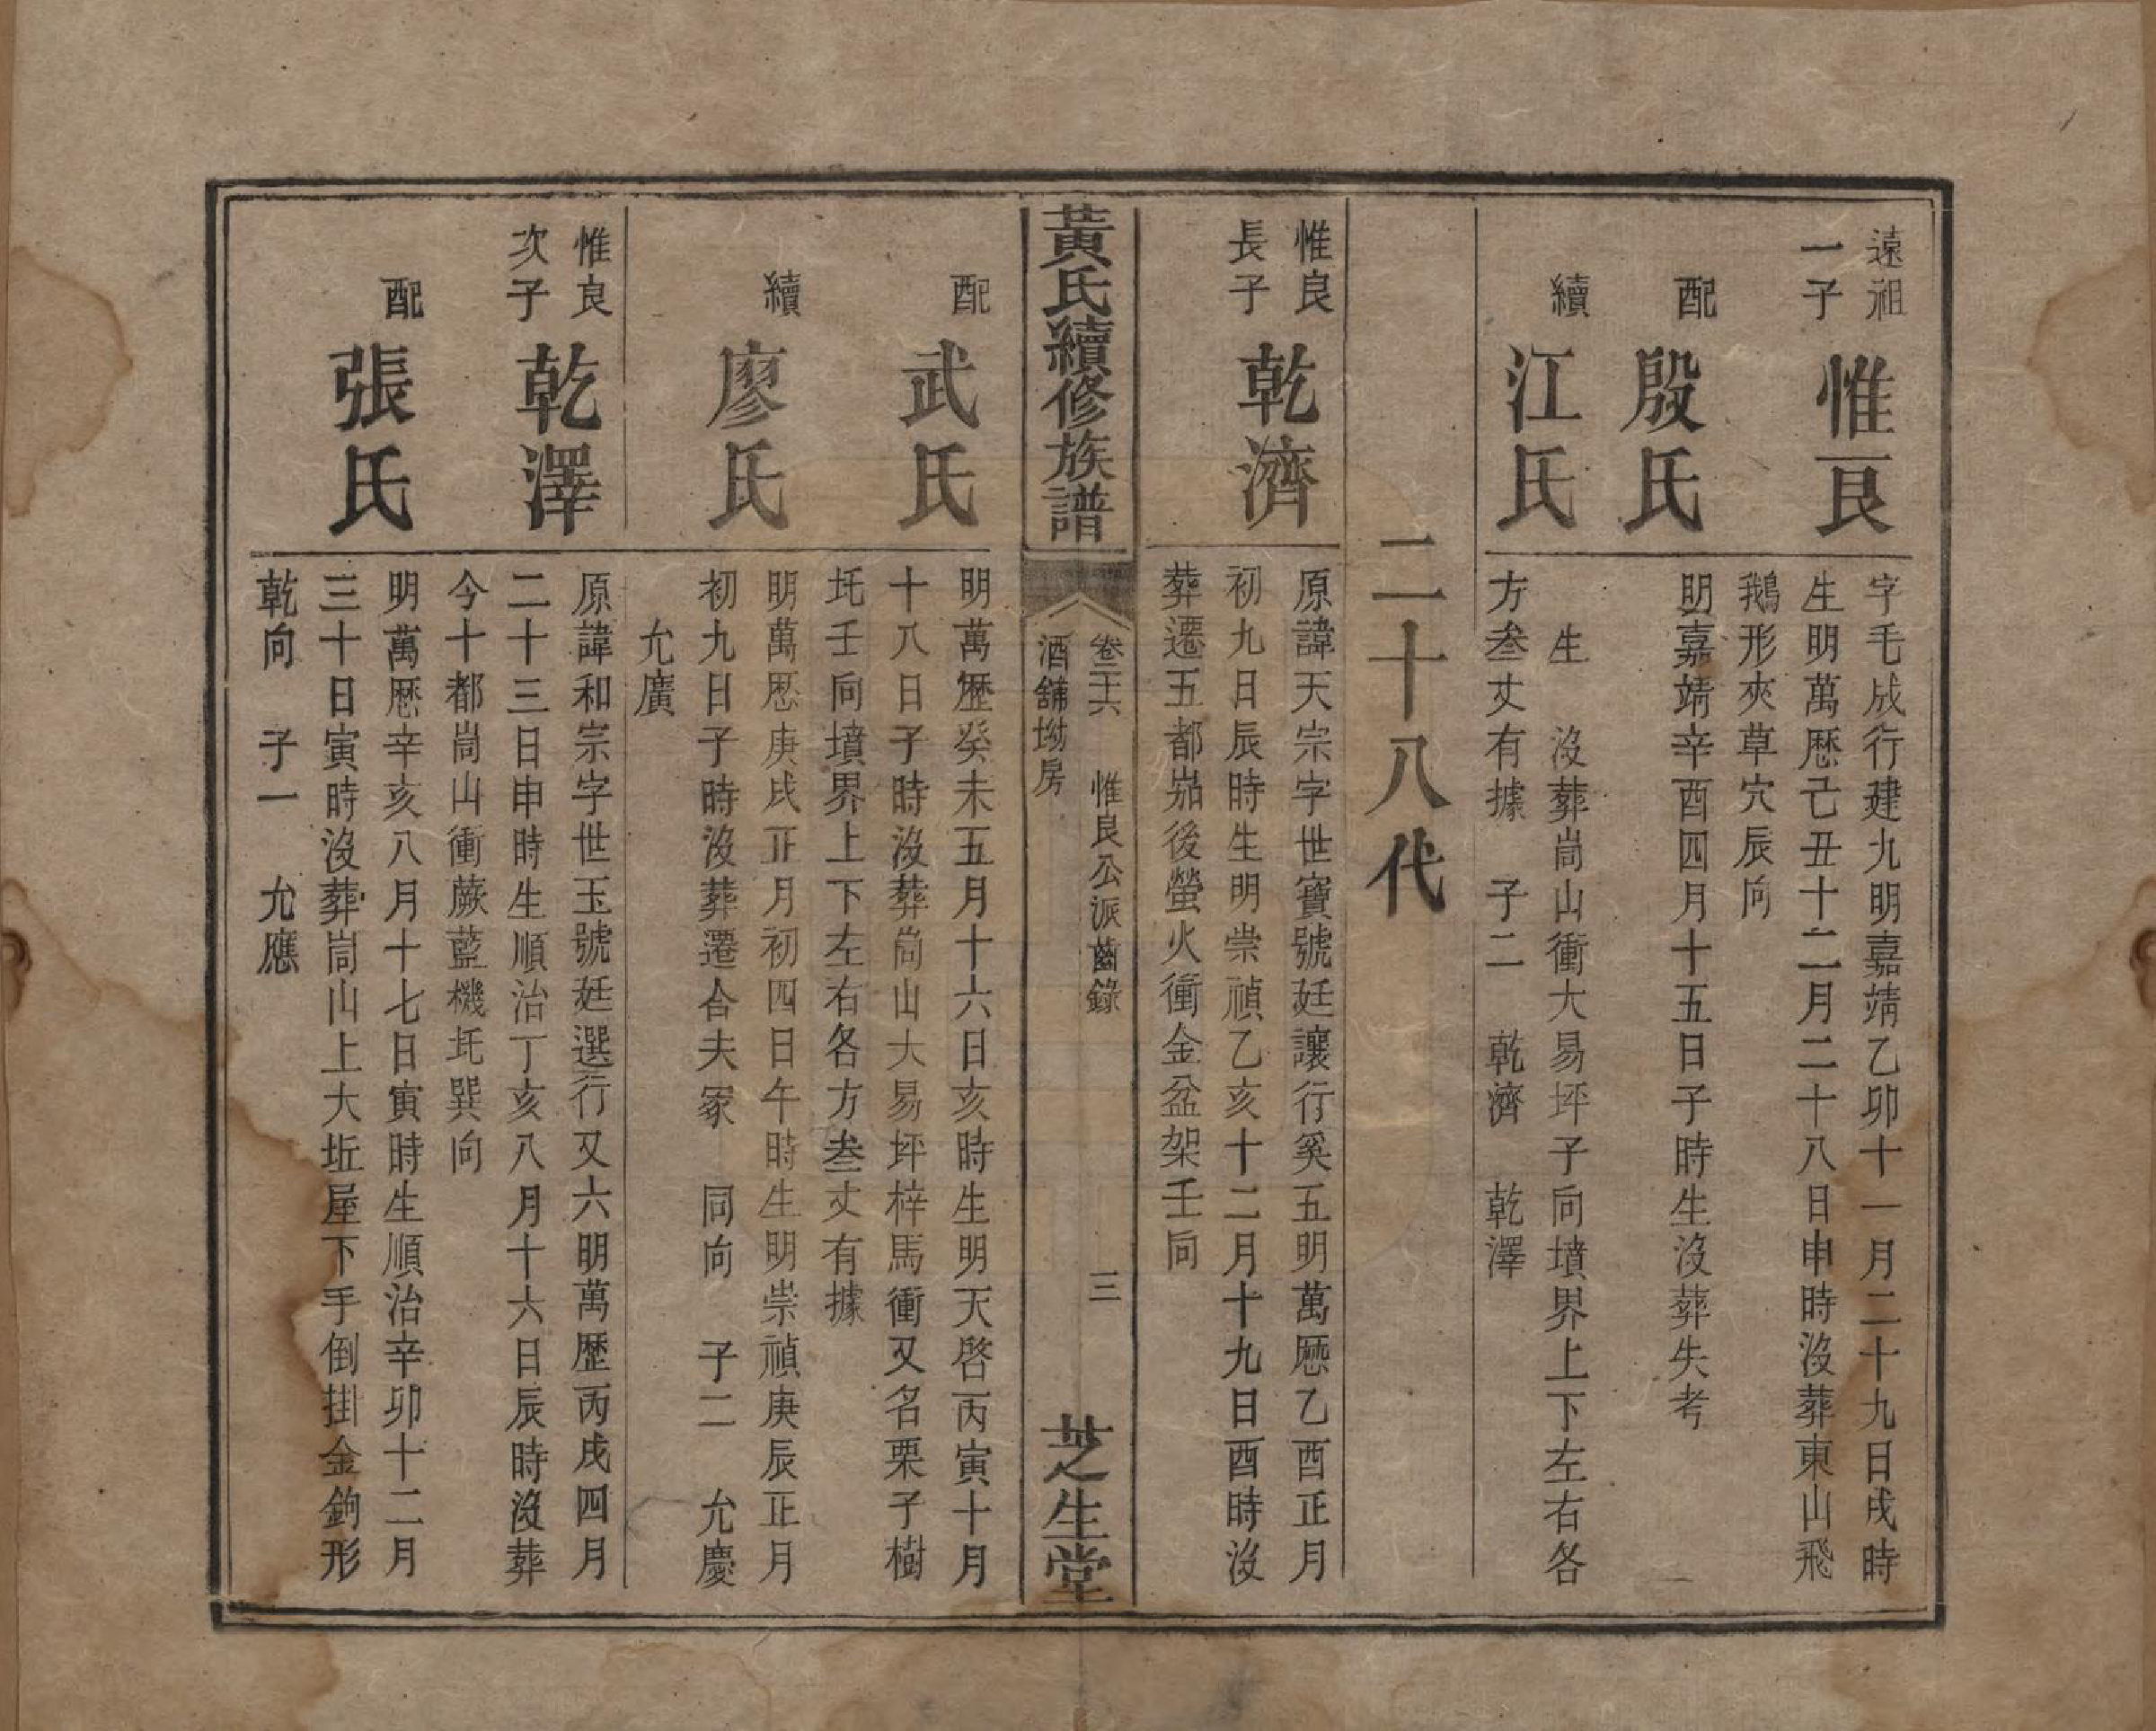 遠祖
一子
惟良
字毛成行建九明嘉靖乙卯十一月二十九日戌時
生明萬歷己丑十二月二十八日申時沒葬東山飛
鵝形夾草穴辰向
配
殷氏
明嘉靖辛酉四月十五日子時生沒葬失考
續
江氏
生 沒葬崗山衝大易坪子向墳界上下左右各
方叁丈有據 子二 乾濟 乾澤
二十八代
惟良
長子
乾濟
原諱天宗字世寶號廷讓行奚五明萬歷乙酉正月
初九日辰時生明崇禎乙亥十二月十九日酉時沒
葬遷五都後螢火衝金盆架壬向
黃氏續修族譜
卷三六 惟良公派齒錄 三
酒舖坳房
芝生堂
配
武氏
明萬歷癸未五月十六日亥時生明天啓丙寅十月
十八日子時沒葬崗山大易坪梓馬衝又名栗子樹
圫壬向墳界上下左右各方叁丈有據
續
廖氏
明萬歷庚戌正月初四日午時生明崇禎庚辰正月
初九日子時沒葬遷合夫冢 同向 子二 允慶
允廣
惟良
次子
乾澤
原諱和宗字世玉號廷選行又六明萬歷丙戌四月
二十三日申時生順治丁亥八月十六日辰時沒葬
今十都崗山衝蕨藍機圫巽向
配
張氏
明萬歷辛亥八月十七日寅時生順治辛卯十二月
三十日寅時沒葬崗山上大坵屋下手倒掛金鉤形
乾向 子一 允應